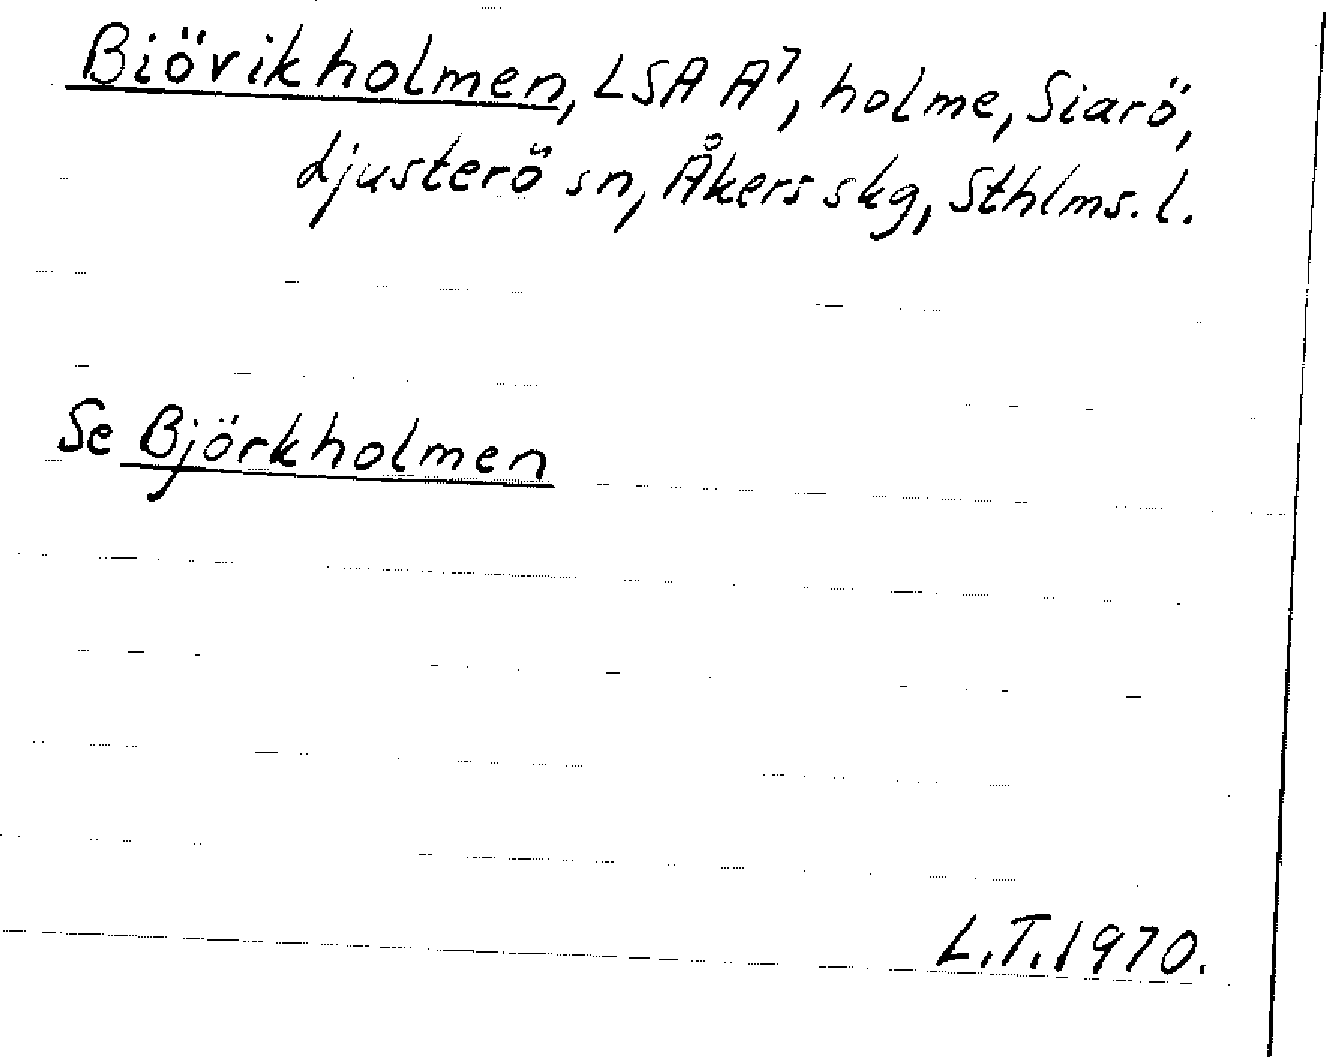 Biövikholmen, LSA A⁷, holme, Siarö,
Ljusterö sn, Åkers skg, Sthlms. l.
Se Björkholmen
L.T. 1970.